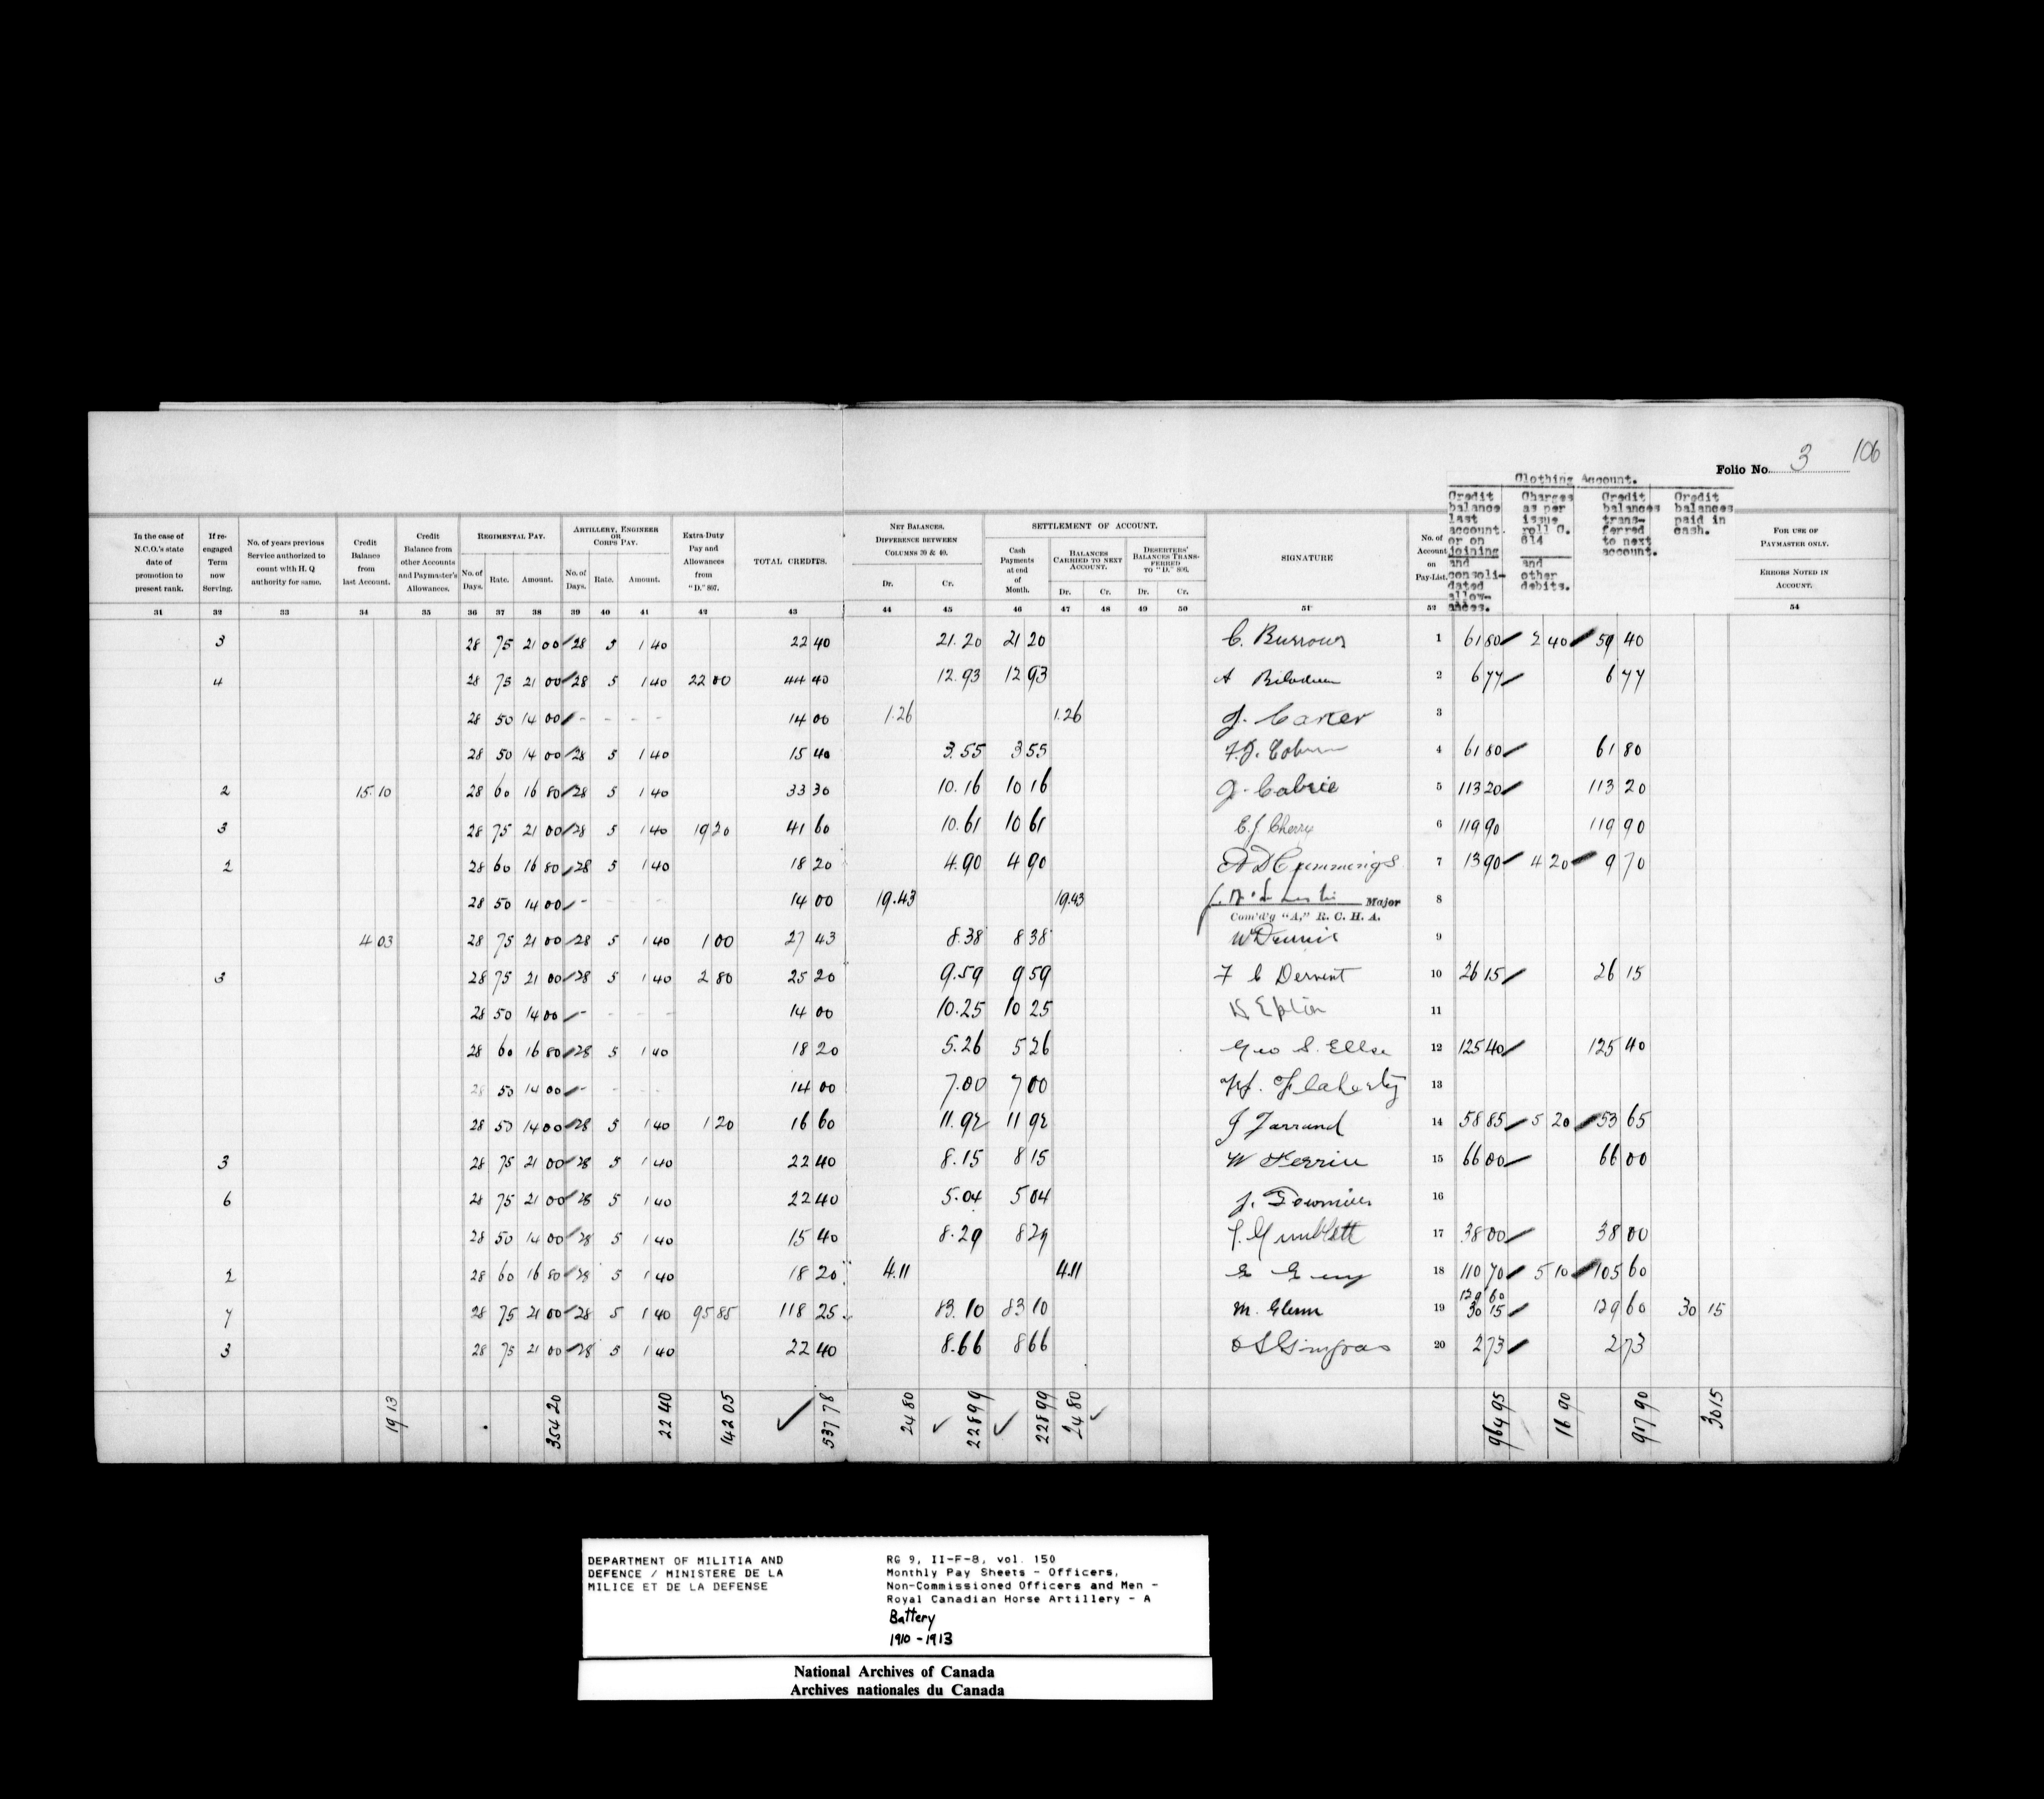 Folio No. 3 106
Clothing Account.
In the case of N.C.O.'s state date of promotion to present rank.
If re-engaged Term now Serving.
No. of years previous Service authorized to count with H. Q authority for same.
Credit Balance from last Account.
Credit Balance from other Accounts and Paymaster's Allowances.
REGIMENTAL PAY.
No. of Days. Rate. Amount.
ARTILLERY, ENGINEER OR CORPS PAY.
No. of Days. Rate. Amount.
Extra-Duty Pay and Allowances from "D." 807.
TOTAL CREDITS.
NET BALANCES. DIFFERENCE BETWEEN COLUMNS 20 & 40.
Dr. Cr.
SETTLEMENT OF ACCOUNT.
Cash Payments at end of Month.
BALANCES CARRIED TO NEXT ACCOUNT.
Dr. Cr.
DESERTERS' BALANCES TRANSFERRED TO "D." 806.
Dr. Cr.
SIGNATURE
No. of Account on Pay-List.
Credit balance last account or on joining and consolidated allowances.
Charges as per issue roll C. 614 and other debits.
Credit balances transferred to next account.
Credit balances paid in cash.
FOR USE OF PAYMASTER ONLY.
ERRORS NOTED IN ACCOUNT.
31 32 33 34 35 36 37 38 39 40 41 42 43 44 45 46 47 48 49 50 51 52 54
3 28 75 21 00 28 5 1 40 22 40 21.20 21 20 C. Burrows 1 61 80 2 40 59 40
4 28 75 21 00 28 5 1 40 22 00 44 40 12.93 12 93 A Bilodeau 2 6 77 6 77
28 50 14 00 - - - - 14 00 1.26 1.26 J. Carter 3
28 50 14 00 28 5 1 40 15 40 3.55 3 55 F.J. 4 61 80 61 80
2 15.10 28 60 16 80 28 5 1 40 33 30 10.16 10 16 J. Cabrie 5 113 20 113 20
3 28 75 21 00 28 5 1 40 19 20 41 60 10.61 10 61 E.J Cherry 6 119 90 119 90
2 28 60 16 80 28 5 1 40 18 20 4.90 4 90 A D Cummings 7 13 90 4 20 9 70
28 50 14 00 - 14 00 19.43 19.43 Major 8
Com'd'g "A," R. C. H. A.
4 03 28 75 21 00 28 5 1 40 1 00 27 43 8.38 8 38 W Dennis 9
3 28 75 21 00 28 5 1 40 2 80 25 20 9.59 9 59 F C Dervent 10 26 15 26 15
28 50 14 00 - - - - 14 00 10.25 10 25 Epton 11
28 60 16 80 28 5 1 40 18 20 5.26 5 26 Geo S. Ellse 12 125 40 125 40
28 50 14 00 - - - - 14 00 7.00 7 00 Flaherty 13
28 50 14 00 28 5 1 40 1 20 16 60 11.92 11 92 J Farrand 14 58 85 5 20 53 65
3 28 75 21 00 28 5 1 40 22 40 8.15 8 15 W 15 66 00 66 00
6 28 75 21 00 28 5 1 40 22 40 5.04 5 04 J. Fournier 16
28 50 14 00 28 5 1 40 15 40 8.29 8 29 Gumblett 17 38 00 38 00
2 28 60 16 80 28 5 1 40 18 20 4.11 4.11 18 110 70 5 10 105 60
129 60
7 28 75 21 00 28 5 1 40 95 85 118 25 83.10 83 10 M. Glenn 19 30 15 129 60 30 15
3 28 75 21 00 28 5 1 40 22 40 8.66 8 66 Gingras 20 2 73 2 73
19 13 354 20 22 40 142 05 537 78 24 80 228 99 228 99 24 80 964 95 16 90 917 90 30 15
DEPARTMENT OF MILITIA AND
DEFENCE / MINISTERE DE LA
MILICE ET DE LA DEFENSE
RG 9, II-F-8, vol. 150
Monthly Pay Sheets - Officers,
Non-Commissioned Officers and Men -
Royal Canadian Horse Artillery - A
Battery
1910 - 1913
National Archives of Canada
Archives nationales du Canada